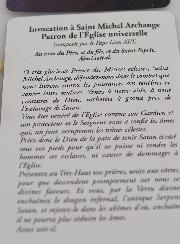 Invocation à Saint Michel Archange
Patron de l'Église universelle
(composée par le Pape Léon XIII)
Au nom du Père, et du fils, et du Saint-Esprit.
Ainsi soit-il.
O très glorieux Prince des Milices célestes, Saint
Michel Archange, défendez-nous dans le combat que
nous livrons contre les puissances
Venez à notre aide, à nous
créatures de Dieu, rachetées à grand prix de
l'esclavage de Satan.
Vous êtes vénéré de l'Eglise comme son Gardien et
son protecteur et le Seigneur vous a confié les âmes
qui, un jour, occuperont les trônes célestes.
Priez donc le Dieu de la paix de tenir Satan écrasé
sous vos pieds pour qu'il ne puisse ni rendre les
hommes ses esclaves, ni causer de dommages à
l'Eglise.
Présentez au Très-Haut nos prières, unies aux vôtres,
pour que descendent promptement sur nous ses
divines faveurs. Et vous, par la Vertu divine
enchaînez le dragon infernal, l'antique Serpent
Satan, et rejetez-le dans les abîmes d'où, enchaîné
il ne pourra plus séduire les âmes.
Ainsi soit-il.